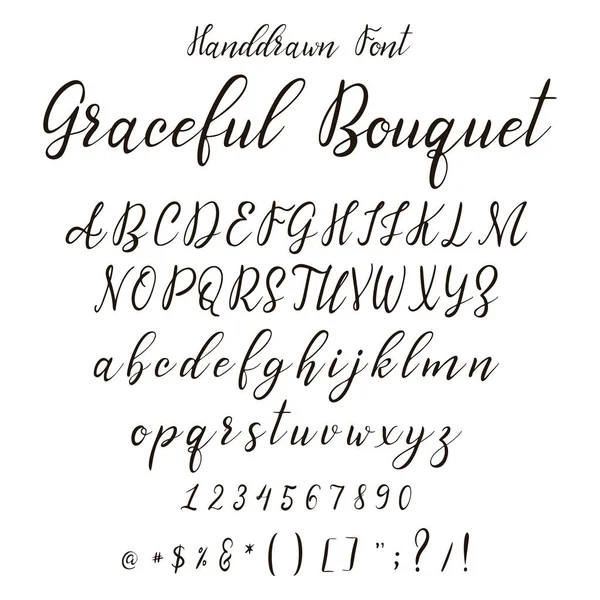 Handdrawn Font
Graceful Bouquet
ABCDEFGHIJKLM
NOPQRSTUVWXYZ
abcdefghijklmn
opqrstuvwxyz
1234567890
@ * # $ % & * ( ) [ ] " ; ? / !